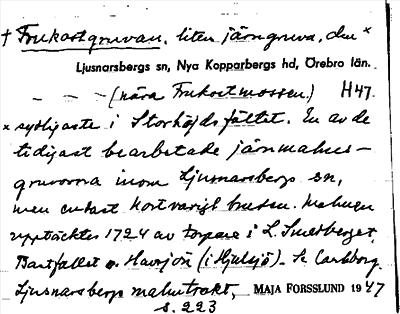 † Frukostgruvan, liten järngruva, den x
Ljusnarsbergs sn, Nya Kopparbergs hd, Örebro län.
– – – (nära Frukostmossen.) H47.
x sydligaste i Storhöjdsfältet. En av de
tidigast bearbetade järnmalms-
gruvorna inom Ljusnarsbergs sn,
men endast kortvarigt bruten. Malmen
upptäcktes 1724 av torpare i L. Smedberget,
Bastfallet o. Havsjön (i Hjulsjö). Se Carlborg
Ljusnarsbergs malmtrakt, MAJA FORSSLUND 1947
s. 223